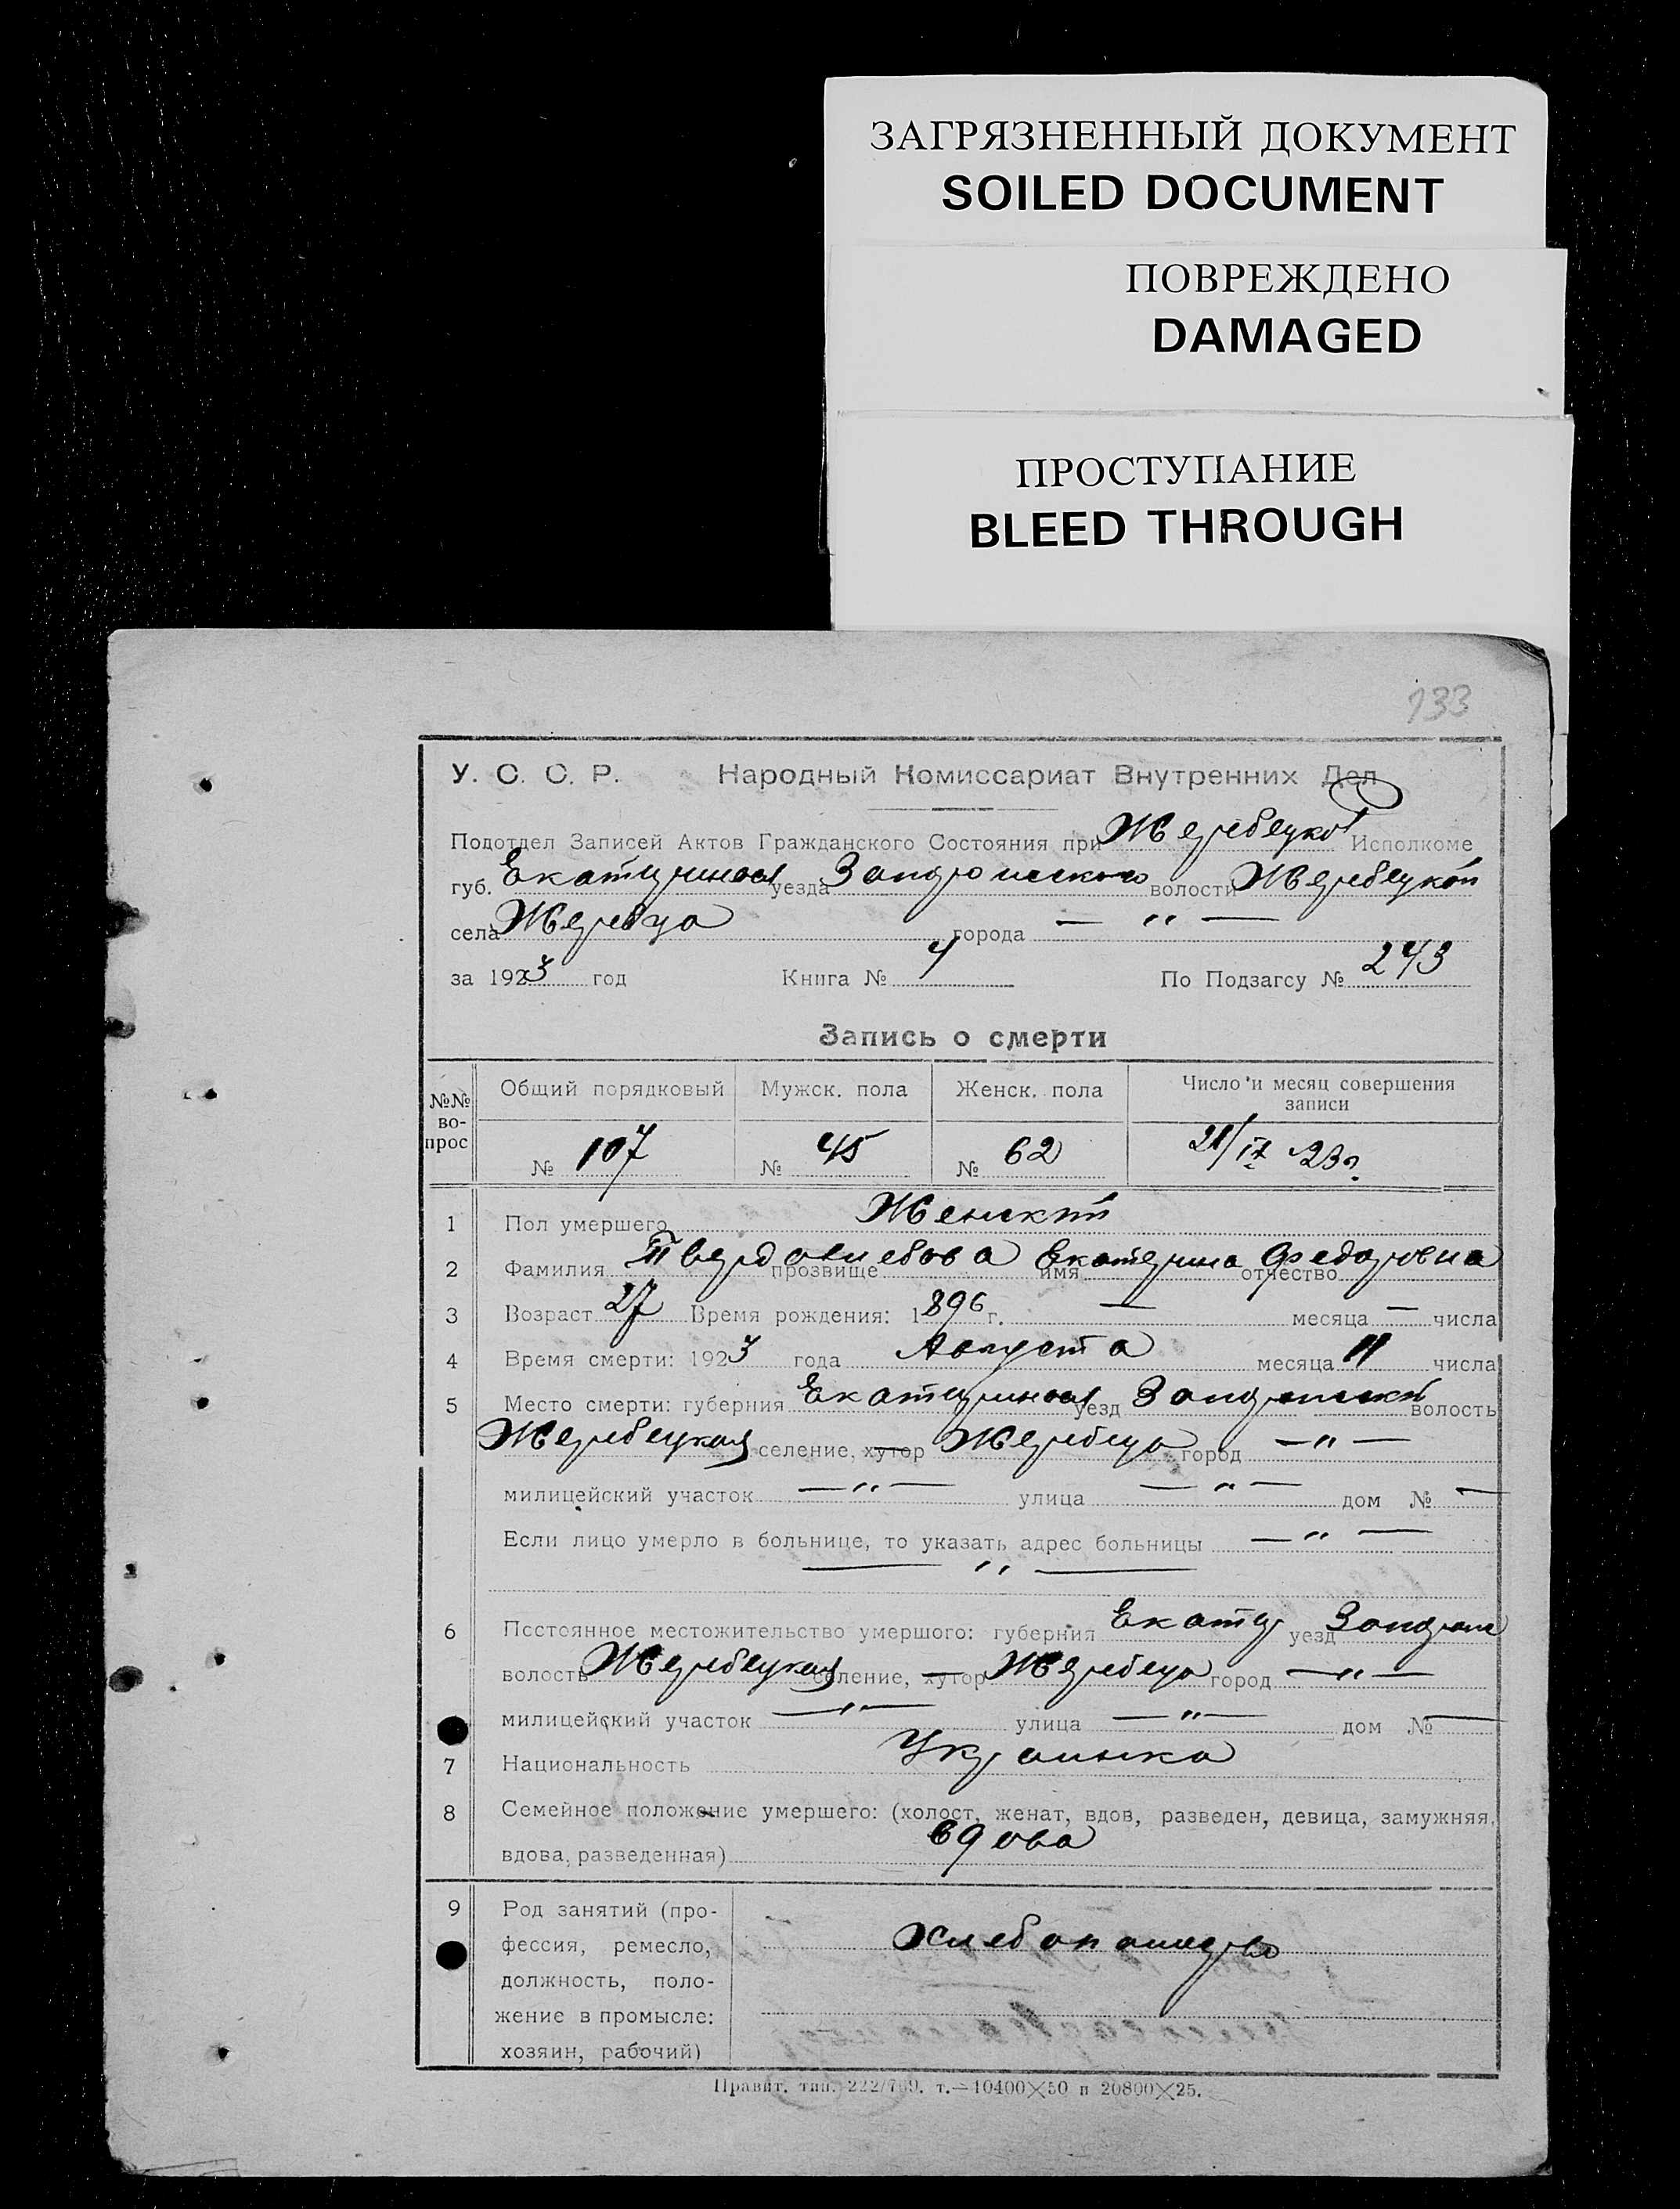 ЗАГРЯЗНЕННЫЙ ДОКУМЕНТ
SOILED DOCUMENT
ПОВРЕЖДЕНО
DAMAGED
ПРОСТУПАНИЕ
BLEED THROUGH
133
У. С. С. Р. Народный Комиссариат Внутренних Дел
Подотдел Записей Актов Гражданского Состояния при Жеребецком Исполкоме
губ. Екатериносл уезда Запорожского волости Жеребецкой
села Жеребца города — " —
за 1923 год Книга № 4 По Подзагсу № 243
Запись о смерти
№№ вопрос Общий порядковый Мужск. пола Женск. пола Число и месяц совершения записи
№ 107 № 45 № 62 21/IX 23г.
1 Пол умершего Женский
2 Фамилия Твердохлебова прозвище имя Екатерина отчество Федоровна
3 Возраст 27 Время рождения: 1896 г. — месяца — числа
4 Время смерти: 1923 года Августа месяца 11 числа
5 Место смерти: губерния Екатериносл уезд Запорожский волость
Жеребецкая селение, хутор Жеребец город — " —
милицейский участок — " — улица — " — дом № —
Если лицо умерло в больнице, то указать адрес больницы — " —
— " —
6 Постоянное местожительство умершого: губерния Екатер уезд Запорож
волость Жеребецкая селение, хутор Жеребец город — " —
милицейский участок — " — улица — " — дом № —
7 Национальность Украинка
8 Семейное положение умершего: (холост, женат, вдов, разведен, девица, замужняя,
вдова, разведенная) вдова
9 Род занятий (про-
фессия, ремесло, Хлебопашество
должность, поло-
жение в промысле:
хозяин, рабочий)
Правит. тип. 222/769. т.—10400×50 и 20800×25.